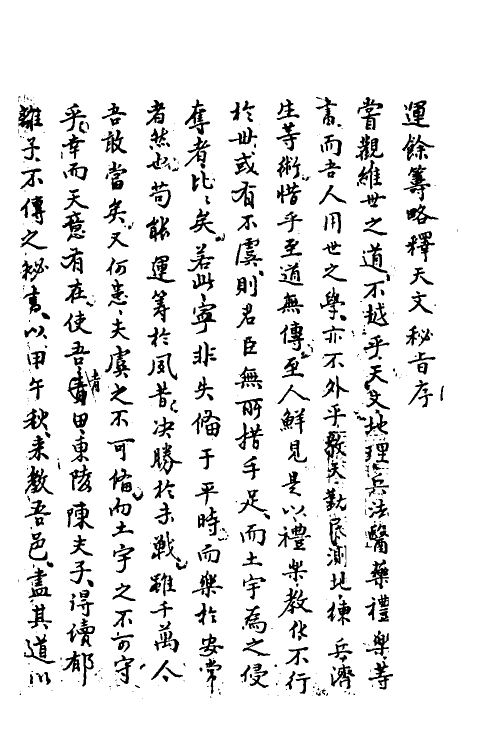 運餘籌略釋天文秘旨序
嘗觀維世之道、不越乎天文地理兵法醫藥禮樂等
書、而吾人用世之學、亦不外乎敬天勤民測地練兵濟
生等術、惜乎至道無傳、至人鮮見、是以禮樂教化不行
於世、或有不虞、則君臣無所措手足、而土宇為之侵
奪者、比比矣、若此、寧非失備于平時、而樂於安常
者然也、苟能運筹於夙昔、决勝於未戰、雖千萬人
吾敢當矣、又何患夫虞之不可備、而土宇之不可守
乎、幸而天意有在、使吾青田東陵陳夫子、得續郁
離子不傳之秘書、以甲午秋、来教吾邑、盡其道以